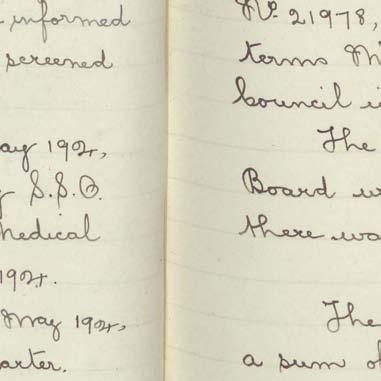 informed
screened
ay 1924,
S.S.O.
Medical
1924.
May 1924,
arter.
No. 21978,
terms
Council
The
Board
there wa
The
a sum of